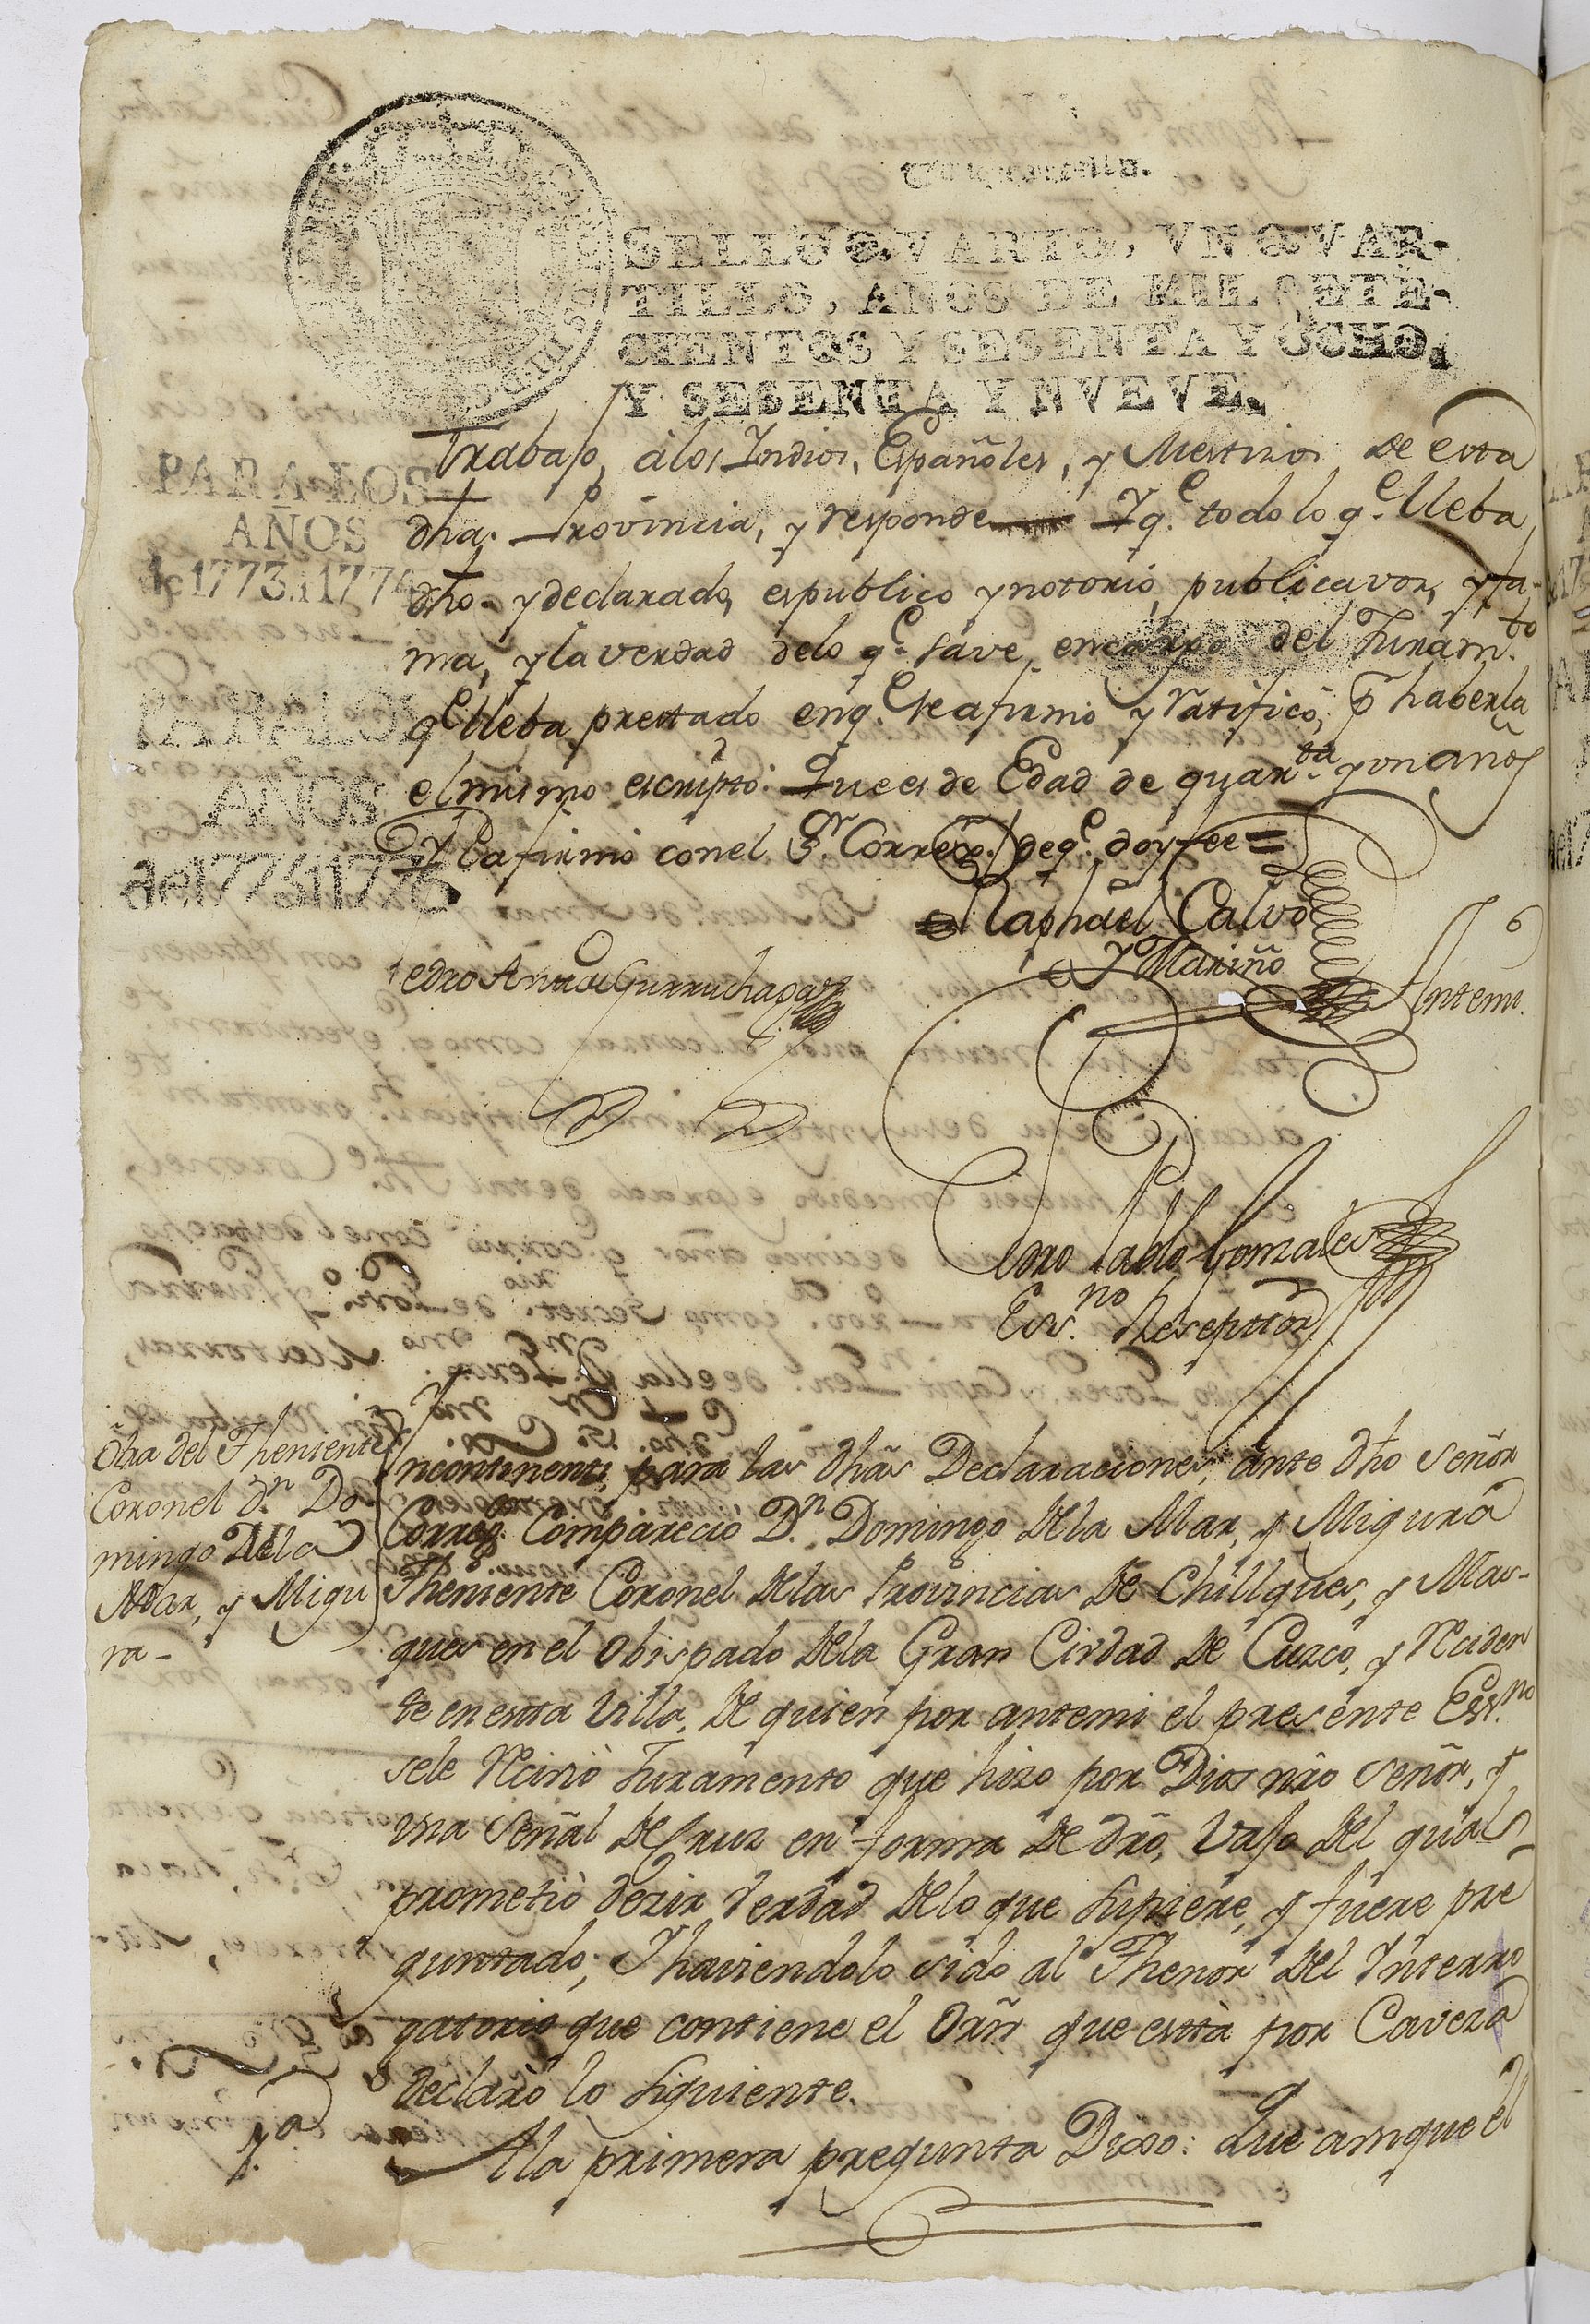 SELLO QVARTO, VN QVAR-
TILLO, AÑOS DE MIL SETE-
CIENTOS Y SESENTA Y OCHO,
Y SESENTA Y NVEVE.
PARA LOS
AÑOS
de 1773 i 1774
PARA LOS
AÑOS
de 1775 i 1776
trabajo, àlos Indios, Españoles, y Mestizos de esta
dha. Provincia, y responde Y q.e todo lo q.e lleba
dho. y declarado, es publico y notorio, publica voz, y fa-
ma, y la verdad delo q.e save, en cargo del Juram.to
q.e lleba prestado en q.e se afirmó y ratificó, p.r haberla
el mismo escripto: Que es de Edad de quar.ta y un años
Y la firmó con el S.r Correg.or de q.e doy fee =
Raphael Calvo
y Mariño
Pedro Gurruchaga
Ante mi.
Pablo Gonzales
Ess.no Reseptor
Otra del Theniente
Coronel d.n Do-
mingo Dela
Mar, y Migu
ra -
Incontinenti, para las dhãs Declaraciones, ante dho Señor
Correg.or Compareció D.n Domingo Dela Mar, y Migura
Theniente Coronel Delas Provincias De Chillques, y Mas-
ques en el Obispado Dela Gran Ciudad De Cuzco, y Reciden
te en estta Villa, De quien por antemi el presente Ess.no
sele Recivió Juramento que hizo por Dios nrõ Señor, y
una Señal De Cruz en forma De drõ, vajo Del qual
prometió dezir Verdad Delo que supiere, y fuere pre
guntado; Y haviendolo sido al Thenor Del Interro
gatorio que contiene el Orñ que está por Caveza
declaró lo siguiente.
1.a
A la primera pregunta Dixo: Que aunque el